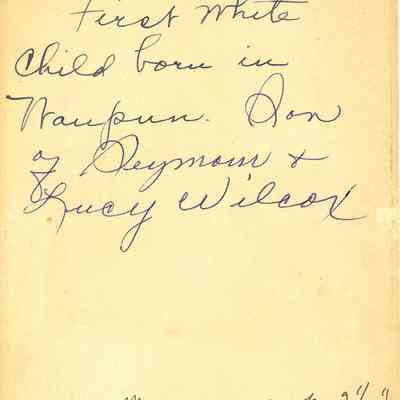 First White
Child born in
Waupun. Son
of Seymour &
Lucy Wilcox